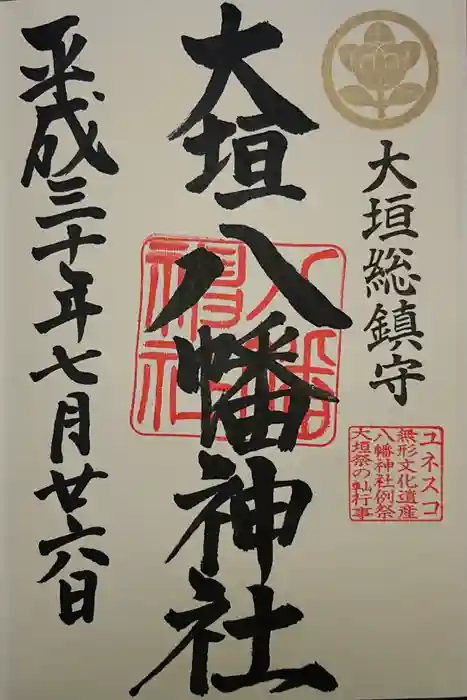 大垣総鎮守
ユネスコ
無形文化遺産
八幡神社例祭
大垣祭の軕行事
大垣八幡神社
八幡
神社
平成三十年七月廿六日